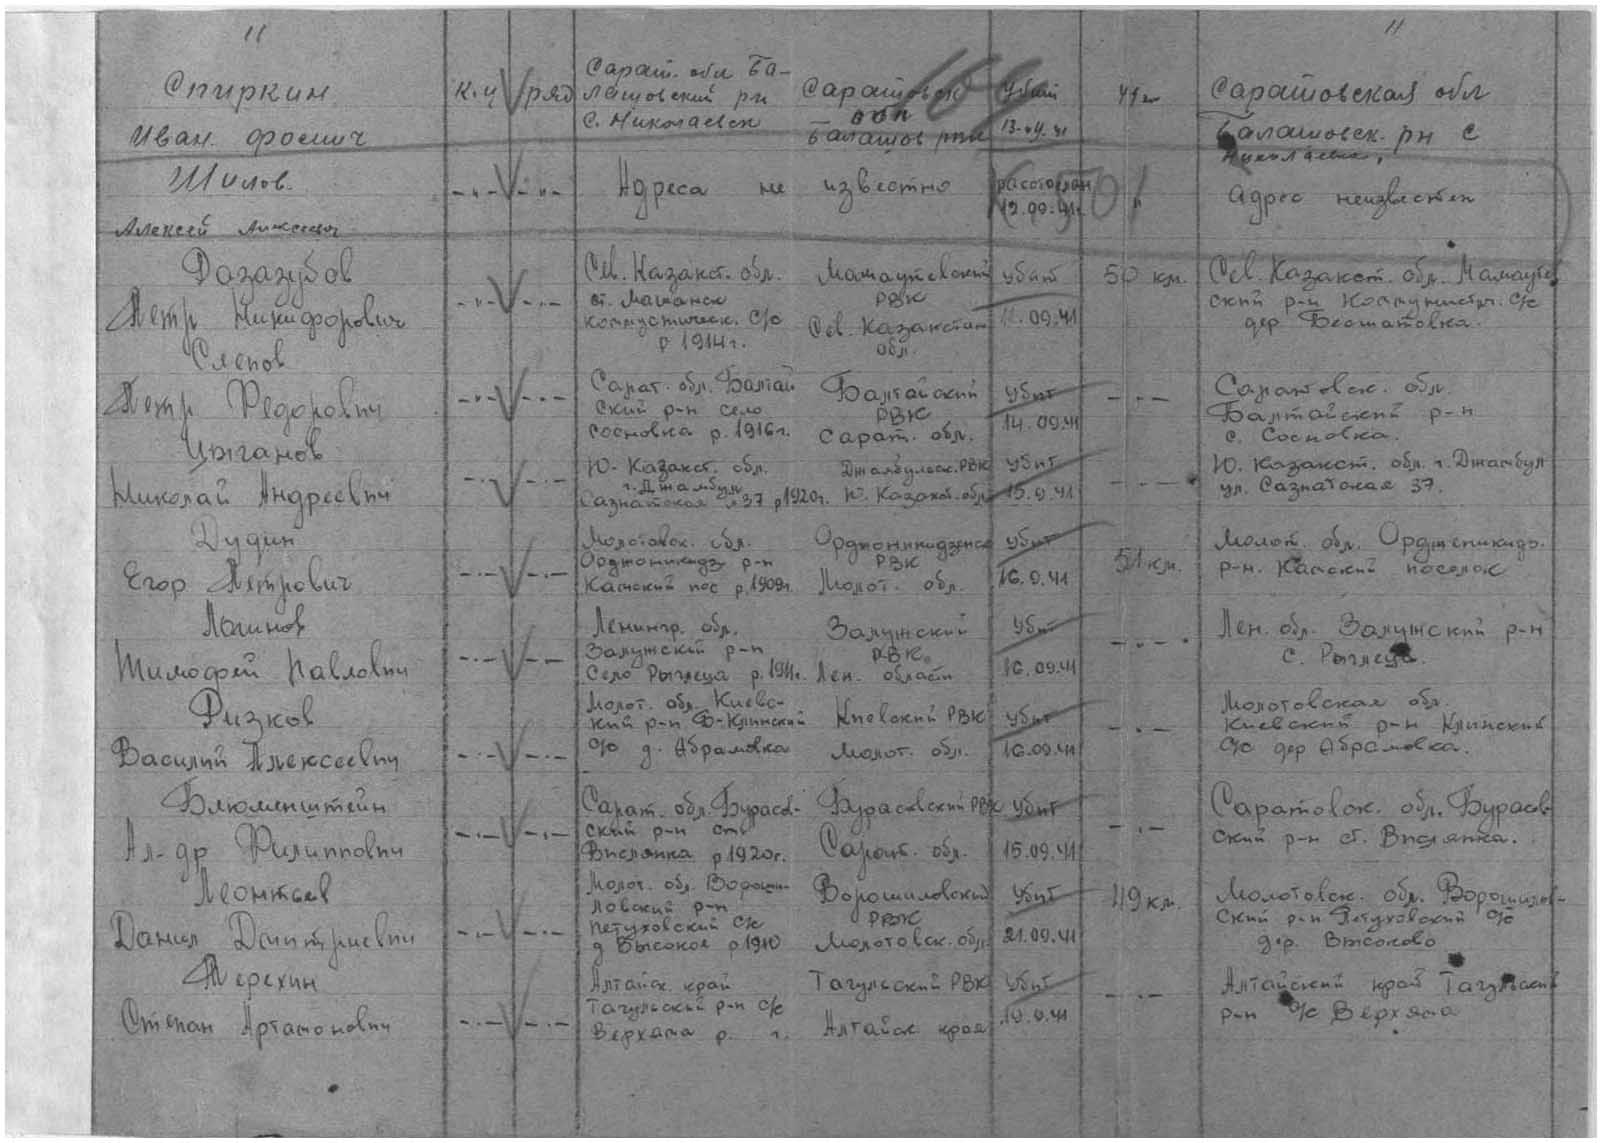 11 11
Спиркин
Иван. фомич
к.ч ряд
Сарат. обл Ба-
лашовский рн
с. Николаевск
Саратовск
обл
Балашов
убит
13.09.41
49 км
Саратовская обл
Балашовск. рн с
Николаевк.
Шилов.
Алексей Алексеевич
-"- -"-
Адреса не известно
расстрелян
12.09.41г.
"
адрес неизвестен
Розазубов
Петр Никифорович
-"- -"-
Сев. Казакст. обл.
С/с
р 1914г.
РВК
Сев. Казакстан
обл.
убит
11.09.41
50 км.
Сев. Казакст. обл.
ский р-н С/с
дер.
Слепов
Петр Федорович
-"- -"-
Сарат. обл. Балтай
ский р-н село
Сосновка р. 1916г.
Балтайский
РВК
Сарат. обл.
убит
14.09.41
-"-
Саратовск. обл.
Балтайский р-н
с. Сосновка.
Цыганов
Николай Андреевич
-"- -"-
Ю. Казакст. обл.
г. Джамбул
Сазнатская 37 р 1920г.
Джамбульск. РВК
Ю. Казакст. обл.
убит
15.9.41
-"-
Ю. Казакст. обл. г. Джамбул
ул. Сазнатская 37.
Дудин
Егор Петрович
-"- -"-
Молотовск. обл.
Орджоникидз р-н
Камский пос р. 1909г.
РВК
Молот. обл.
убит
16.9.41
51 км.
Молот. обл. Орджоникидз.
р-н. Камский поселок
Логинов
Тимофей Павлович
-"- -"-
Ленингр. обл.
Залужский р-н
Село р. 1911г.
Залужский
РВК.
Лен. области
убит
16.09.41
-"-
Лен. обл. Залужский р-н
с.
Ризков
Василий Алексеевич
-"- -"-
Молот. обл. Киевс-
кий р-н Б-Клинский
С/с д. Абрамовка
Киевский РВК
Молот. обл.
убит
16.09.41
-"-
Молотовская обл.
Киевский р-н Клинский
С/с дер Абрамовка.
Блюменштейн
Ал-др Филиппович
-"- -"-
Сарат. обл. Бурасов-
ский р-н ст.
р 1920г.
Бурасовский РВК
Сарат. обл.
убит
15.09.41
-"-
Саратовск. обл. Бурасов-
ский р-н ст.
Леонтьев
Данил Дмитриевич
-"- -"-
Молот. обл. Вороши-
ловский р-н
Петуховский С/с
д Высокое р 1910
Ворошиловский
РВК
Молотовск. обл.
убит
21.09.41
49 км.
Молотовск. обл. Ворошилов-
ский р-н Петуховский С/с
дер. Высоково
Терехин
Степан Артамонович
-"- -"-
Алтайск. край
Тагульский р-н С/с
р. г.
Тагульский РВК
Алтайск края
убит
19.9.41
-"-
Алтайский край Тагульский
р-н С/с